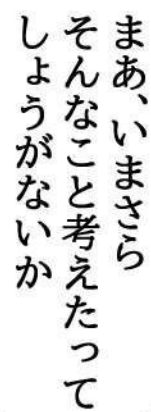 まあ、いまさら
そんなこと考えたって
しょうがないか